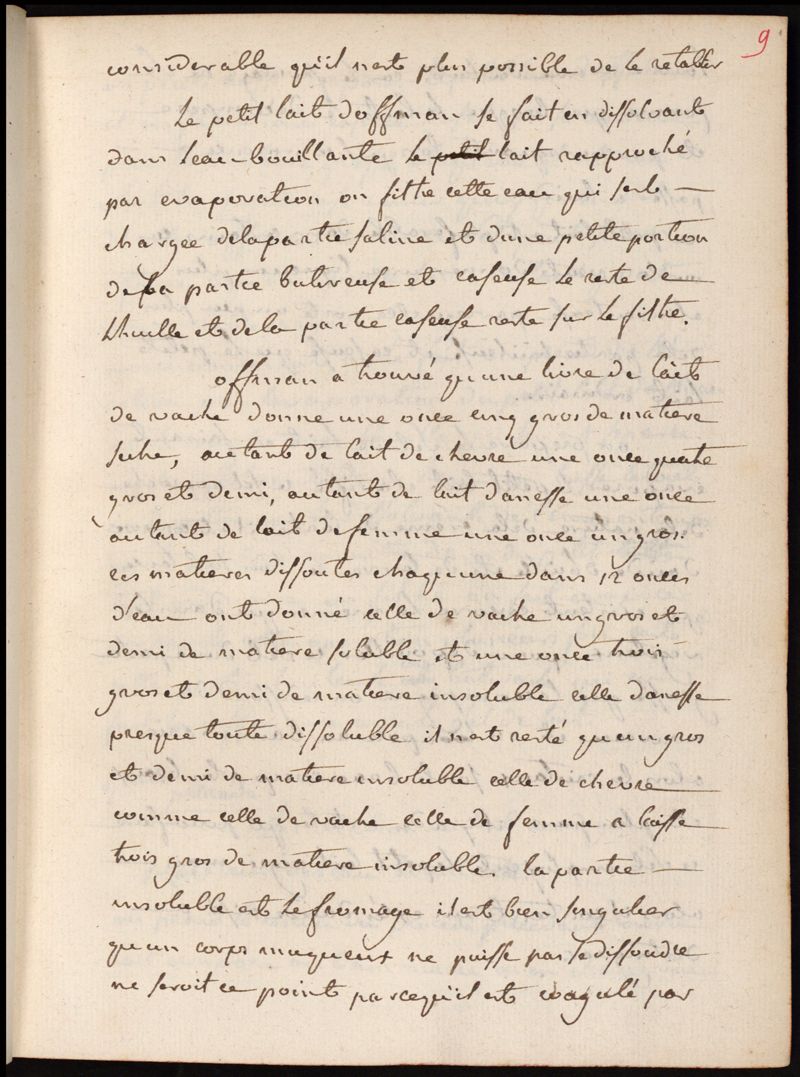 9
considerable qu'il n'est plus possible de le retablir
Le petit lait doffman se fait en dissolvant
dans leau bouillante le petit lait rapproché
par evaporation on filtre cette eau qui s'est
chargée delapartie saline et dune petite portion
de la partie butireuse et caseuse le reste de
Lhuille et dela partie caseuse reste sur le filtre.
offman a trouvé quune livre de lait
de vache donne une once cinq gros de matiere
seche, autant de lait de chevre une once quatre
gros et demi, autant de lait danesse une once
autant de lait de femme une once un gros.
ces matieres dissoutes chaqu'une dans 12 onces
d'eau ont donné celle de vache un gros et
demi de matiere soluble et une once trois
gros et demi de matiere insoluble celle danesse
presque toute dissoluble il n'est resté qu'un gros
et demi de matiere insoluble celle de chevre
comme celle de vache celle de femme a laissé
trois gros de matiere insoluble. la partie
insoluble est le fromage il est bien singulier
qu'un corps muqueux ne puisse pas se dissoudre
ne seroit ce point parcequ'il est coagulé par